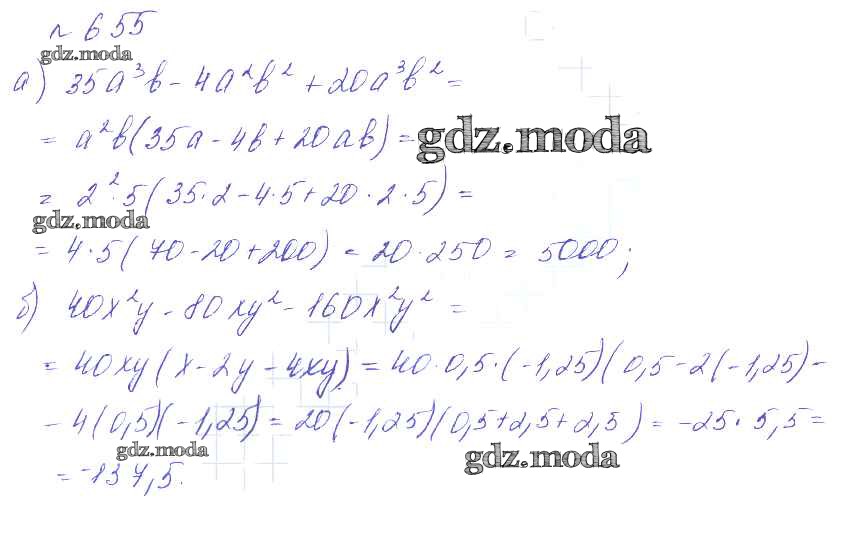 № 655
gdz.moda
а) 35a³b - 4a²b² + 20a³b² =
= a²b(35a - 4b + 20ab) =
gdz.moda
= 2²·5(35·2 - 4·5 + 20·2·5) =
gdz.moda
= 4·5(70 - 20 + 200) = 20·250 = 5000;
б) 40x²y - 80xy² - 160x²y² =
= 40xy(x - 2y - 4xy) = 40·0,5·(-1,25)(0,5 - 2(-1,25) -
- 4(0,5)(-1,25) = 20(-1,25)(0,5 + 2,5 + 2,5) = -25·5,5 =
gdz.moda
gdz.moda
= -137,5.